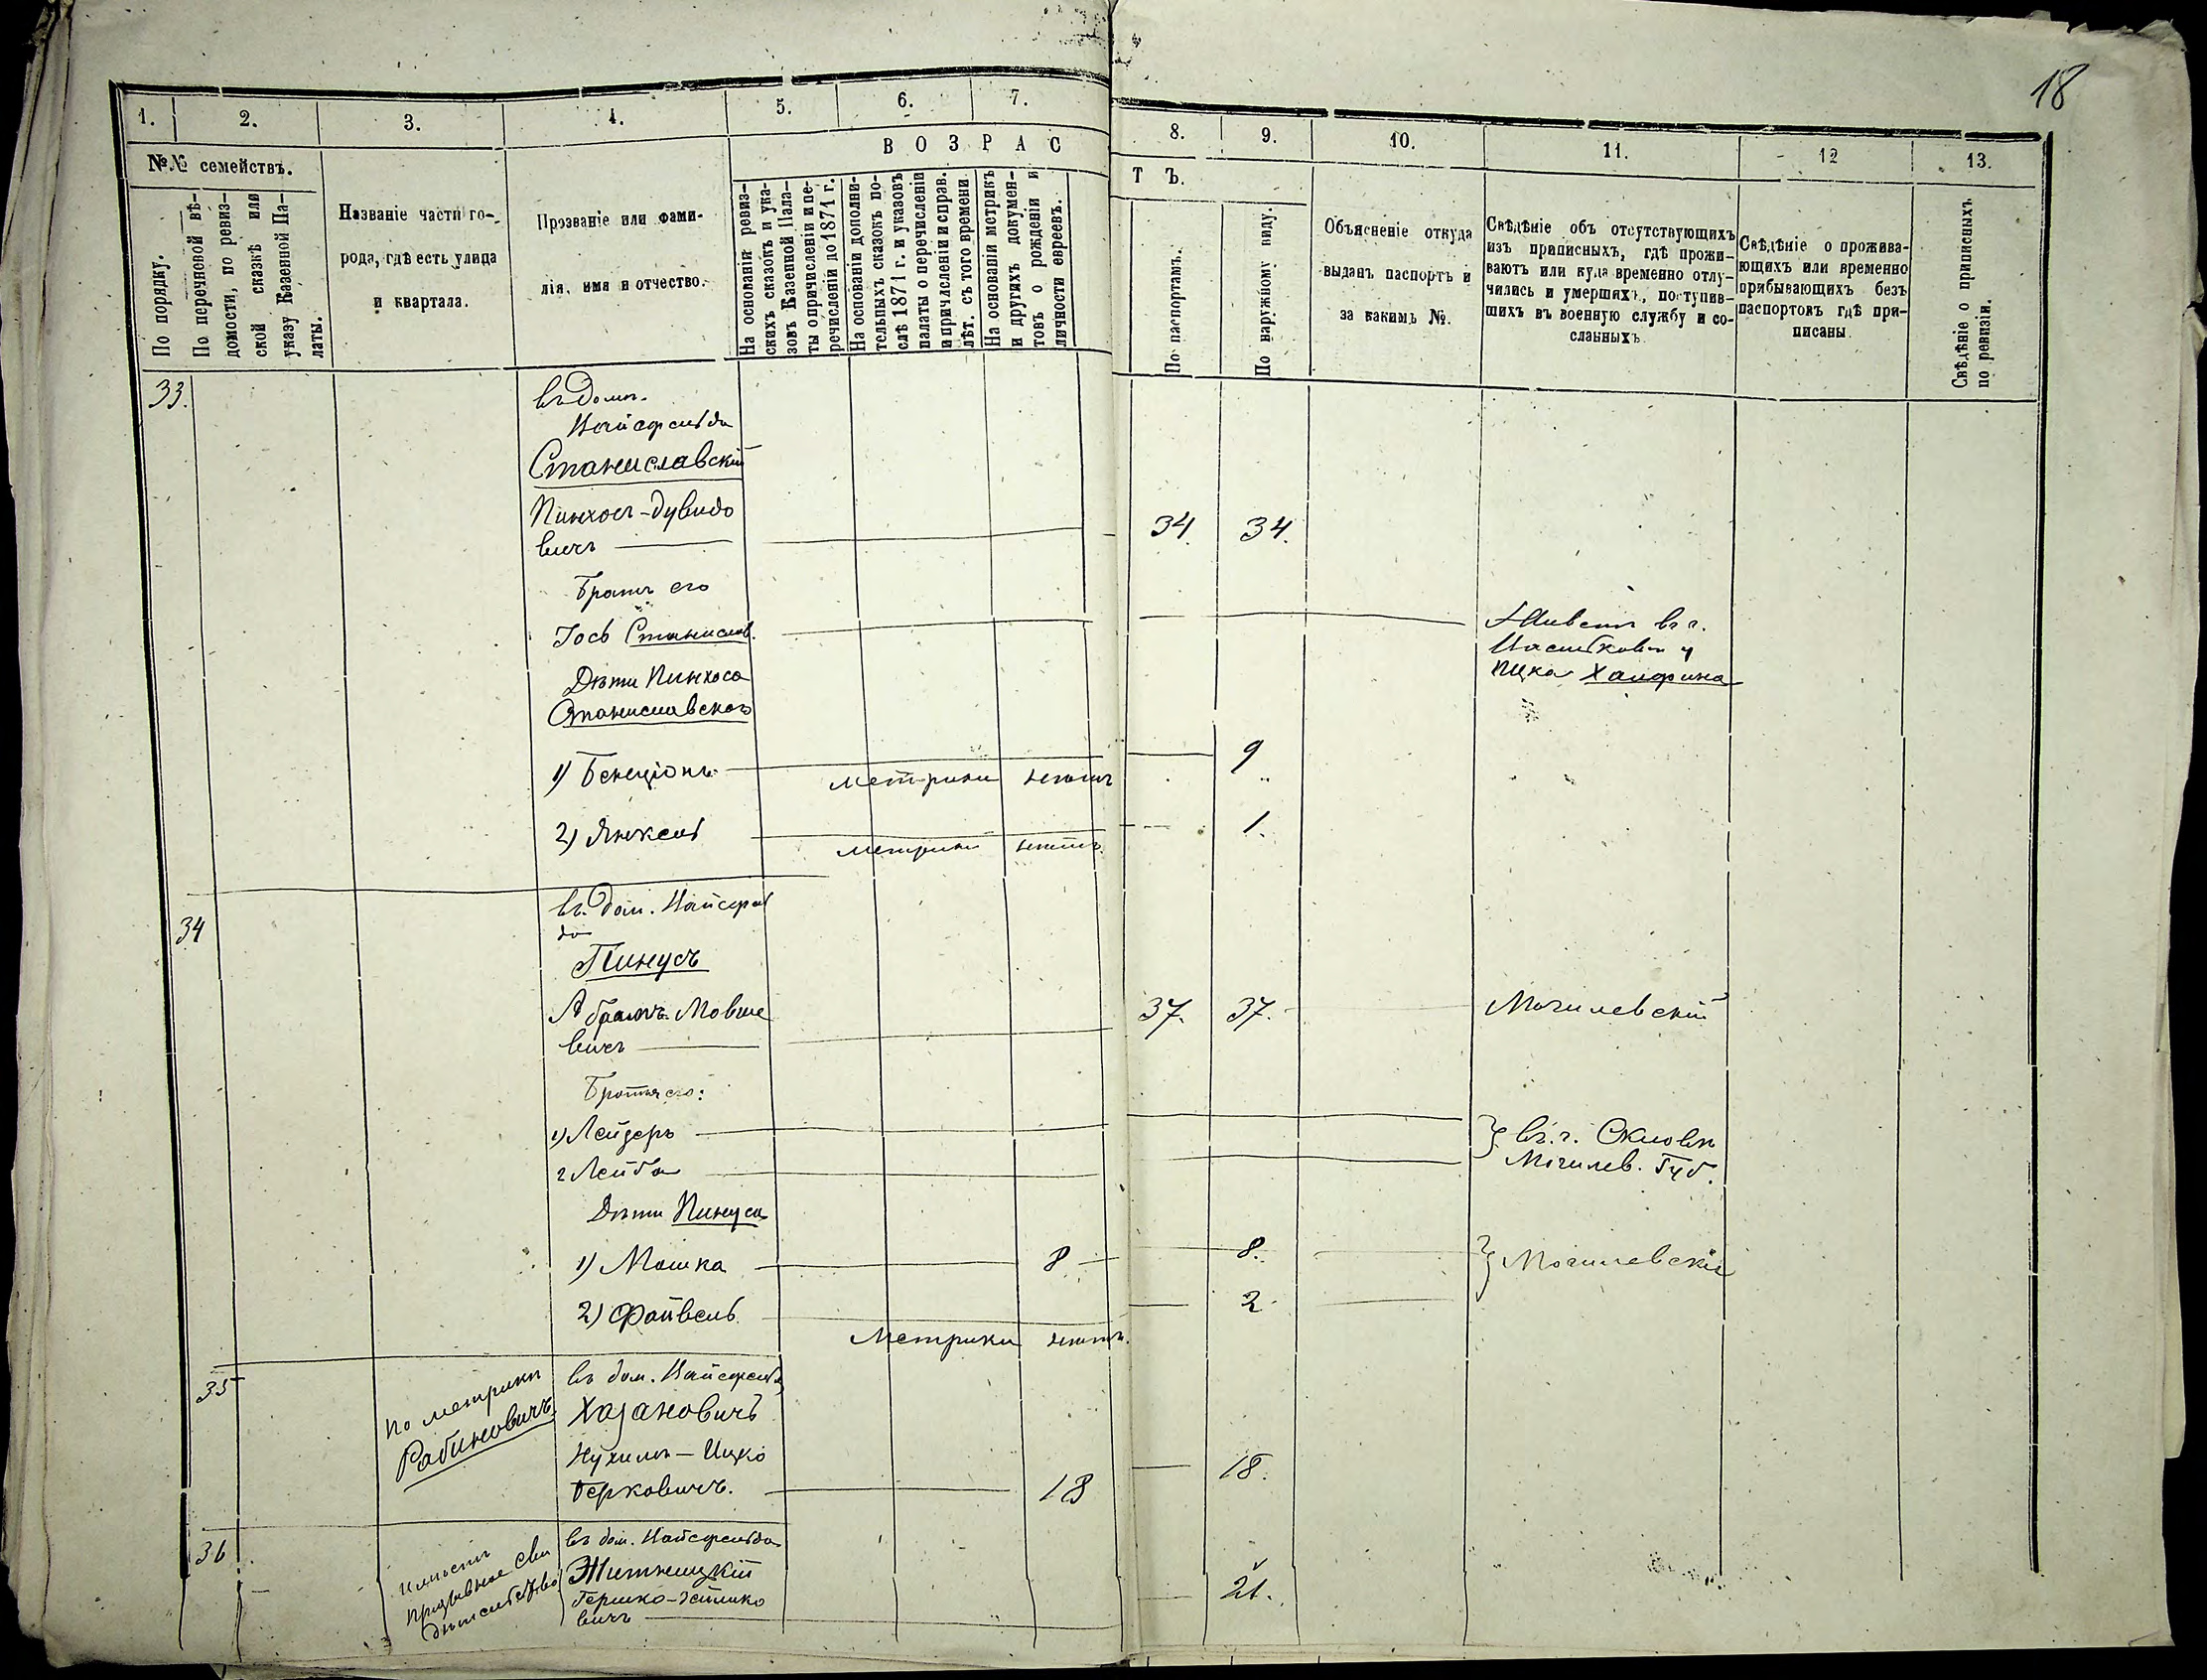 18
1. 2. 3. 4. 5. 6. 7. 8. 9. 10. 11. 12 13.
№№ семействъ.
По порядку.
По перечневой вѣ-
домости, по ревиз-
ской сказкѣ или
указу Казенной Па-
латы.
Названіе части го-
рода, гдѣ есть улица
и квартала.
Прозваніе или фами-
лія, имя и отчество.
ВОЗРАС
ТЪ.
На основаніи ревиз-
скихъ сказокъ и ука-
зовъ Казенной Пала-
ты о причисленіи и пе-
речисленіи до 1871 г.
На основаніи дополни-
тельныхъ сказокъ по-
слѣ 1871 г. и указовъ
палаты о перечисленіи
и причисленіи и справ.
лѣт. съ того времени.
На основаніи метрикъ
и другихъ докумен-
товъ о рожденіи и
личности евреевъ.
По паспортамъ.
По наружному виду.
Объясненіе откуда
выданъ паспортъ и
за какимъ №.
Свѣдѣніе объ отсутствующихъ
изъ приписныхъ, гдѣ прожи-
ваютъ или куда временно отлу-
чились и умершихъ, поступив-
шихъ въ военную службу и со-
сланныхъ.
Свѣдѣніе о прожива-
ющихъ или временно
прибывающихъ безъ
паспортовъ гдѣ при-
писаны.
Свѣдѣніе о приписныхъ
по ревизіи.
33.
въ домѣ
Найсфельда
Станиславскій
Пинхосъ-Дувидо
вичъ 34. 34.
Братъ его
Іось Станислав.
Живетъ въ г.
Ицка Хайфина
Дѣти Пинхоса
Станиславскаго
1) Бенціонъ 9
метрики нѣтъ
2) Янкель 1.
метрики нѣтъ
34
въ дом. Найсфель
да
Пинусъ
Абрамъ Мовше
вичъ 37. 37. Могилевскій
Братья его:
1) Лейзеръ
2 Лейба
въ г. Шкловѣ
Могилев. Губ.
Дѣти Пинуса
1) Мошка 8 8. Могилевскіе
2) Файвель 2
Метрики нѣтъ.
35
По метрики
Рабиновичъ
въ дом. Найсфельда
Хазановичъ
Нухимъ-Ицко
Берковичъ. 18 18.
36
Имѣетъ
призывное сви
дѣтельство
въ дом. Найсфельда
Житницкій
Гершко-Зелико
вичъ 21.